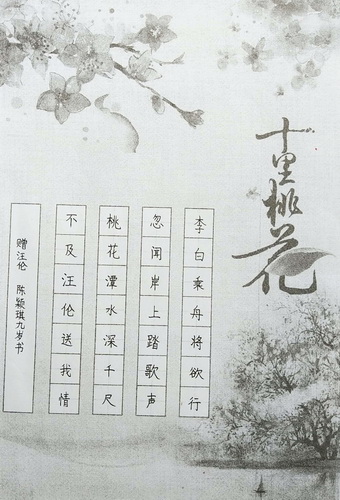 十里桃花
李白乘舟将欲行
忽闻岸上踏歌声
桃花潭水深千尺
不及汪伦送我情
赠汪伦 陈颖琪九岁书